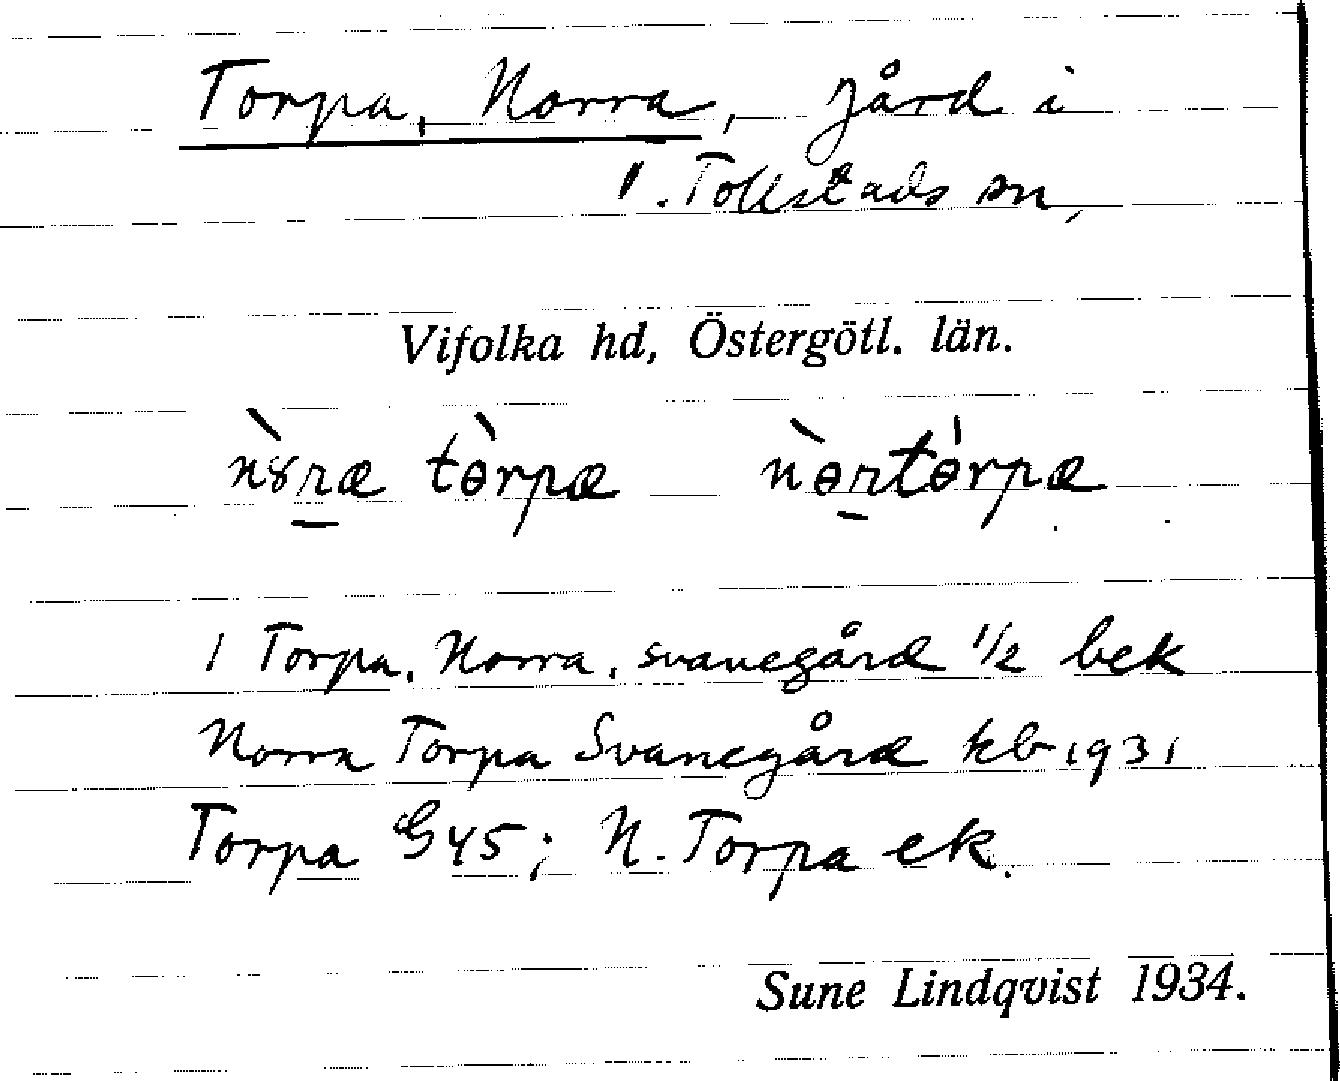 Torpa, Norra, gård i
V. Tollstads sn,
Vifolka hd, Östergötl. län.
tɵ̀rpæ
1 Torpa, Norra, svanegård 1/2 bek
Norra Torpa Svanegård kb 1931
Torpa G45; N. Torpa ek.
Sune Lindqvist 1934.